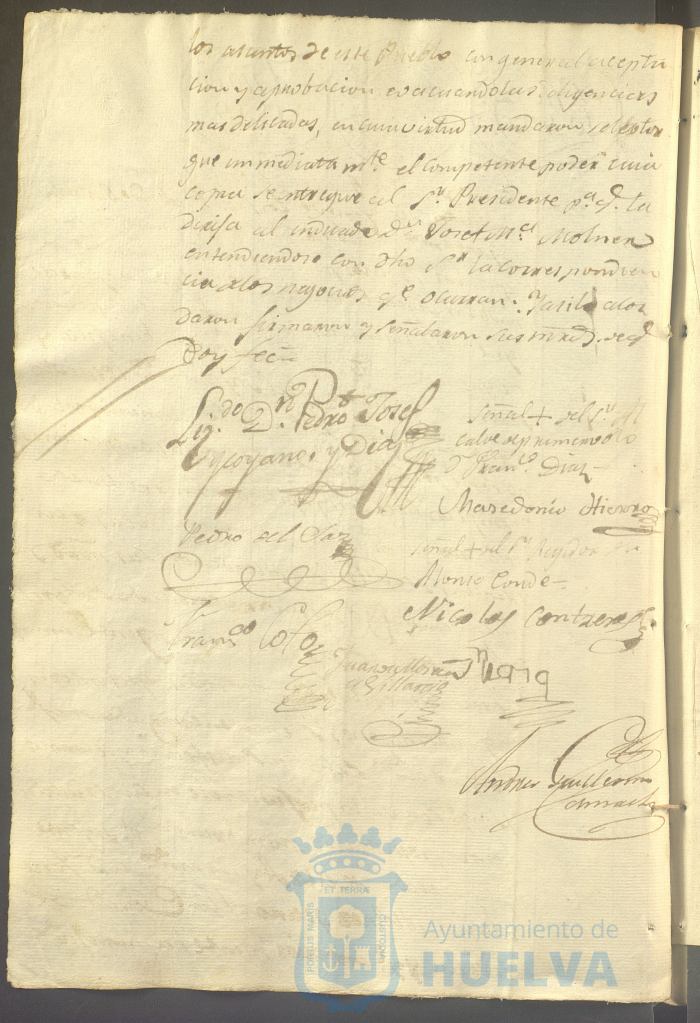 los asuntos de este Pueblo con general acepta
cion y aprobacion evacuando las diligencias
mas delicadas, en cuia virtud mandaron se
que immediatamte. el competente poder cuia
copia se entregue al Sr. Presidente pa. q. la
dirija al indicado Dn. Josef Ml. Molner
entendiendose con dho Sr. la correspondien
cia de los negocios qe. ocurran. Y asi lo acor
daron firmaron y señalaron sus mrds. de q.
doy fee
Ligdo. Dn. Pedro Josef
y Diaz
señal + del Sr.
calde de primer voto
D Franco. Diaz
Masedonio Hierro
Pedro del Saz
señal + del Sr. Regidor
Alonso Conde
Nicolas Contreras
Franco Coto
Juan
Andres Guillermo
Camacho
PORTUS MARIS
ET TERRÆ
CUSTODIA
Ayuntamiento de
HUELVA